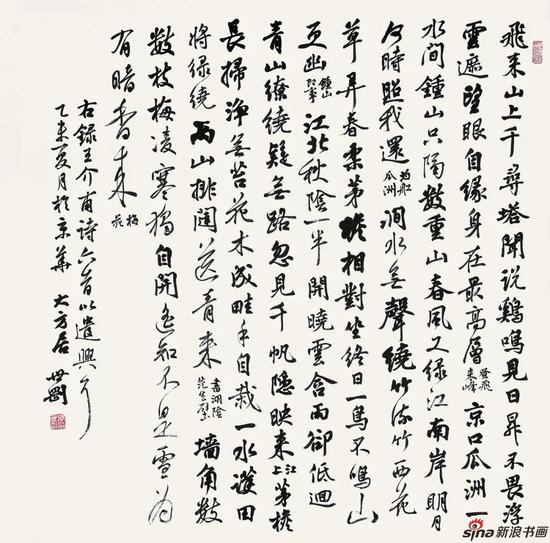 飛來山上千尋塔聞說鷄鳴見日昇不畏浮
雲遮望眼自緣身在最高層登飛來峰京口瓜洲一
水間鍾山只隔數重山春風又綠江南岸明月
何時照我還泊船瓜洲澗水無聲繞竹流竹西花
草弄春柔茅檐相對坐終日一鳥不鳴山
更幽鍾山即事江北秋陰一半開曉雲含雨卻低迴
青山繚繞疑無路忽見千帆隱映來江上茅檐
長掃淨無苔花木成畦手自栽一水護田
將綠繞兩山排闥送青來書湖陰先生壁墻角數
數枝梅凌寒獨自開遙知不是雪為
有暗香來梅花
右錄王介甫詩六首以遣興
乙未夏月於京華大方居
sina新浪书画